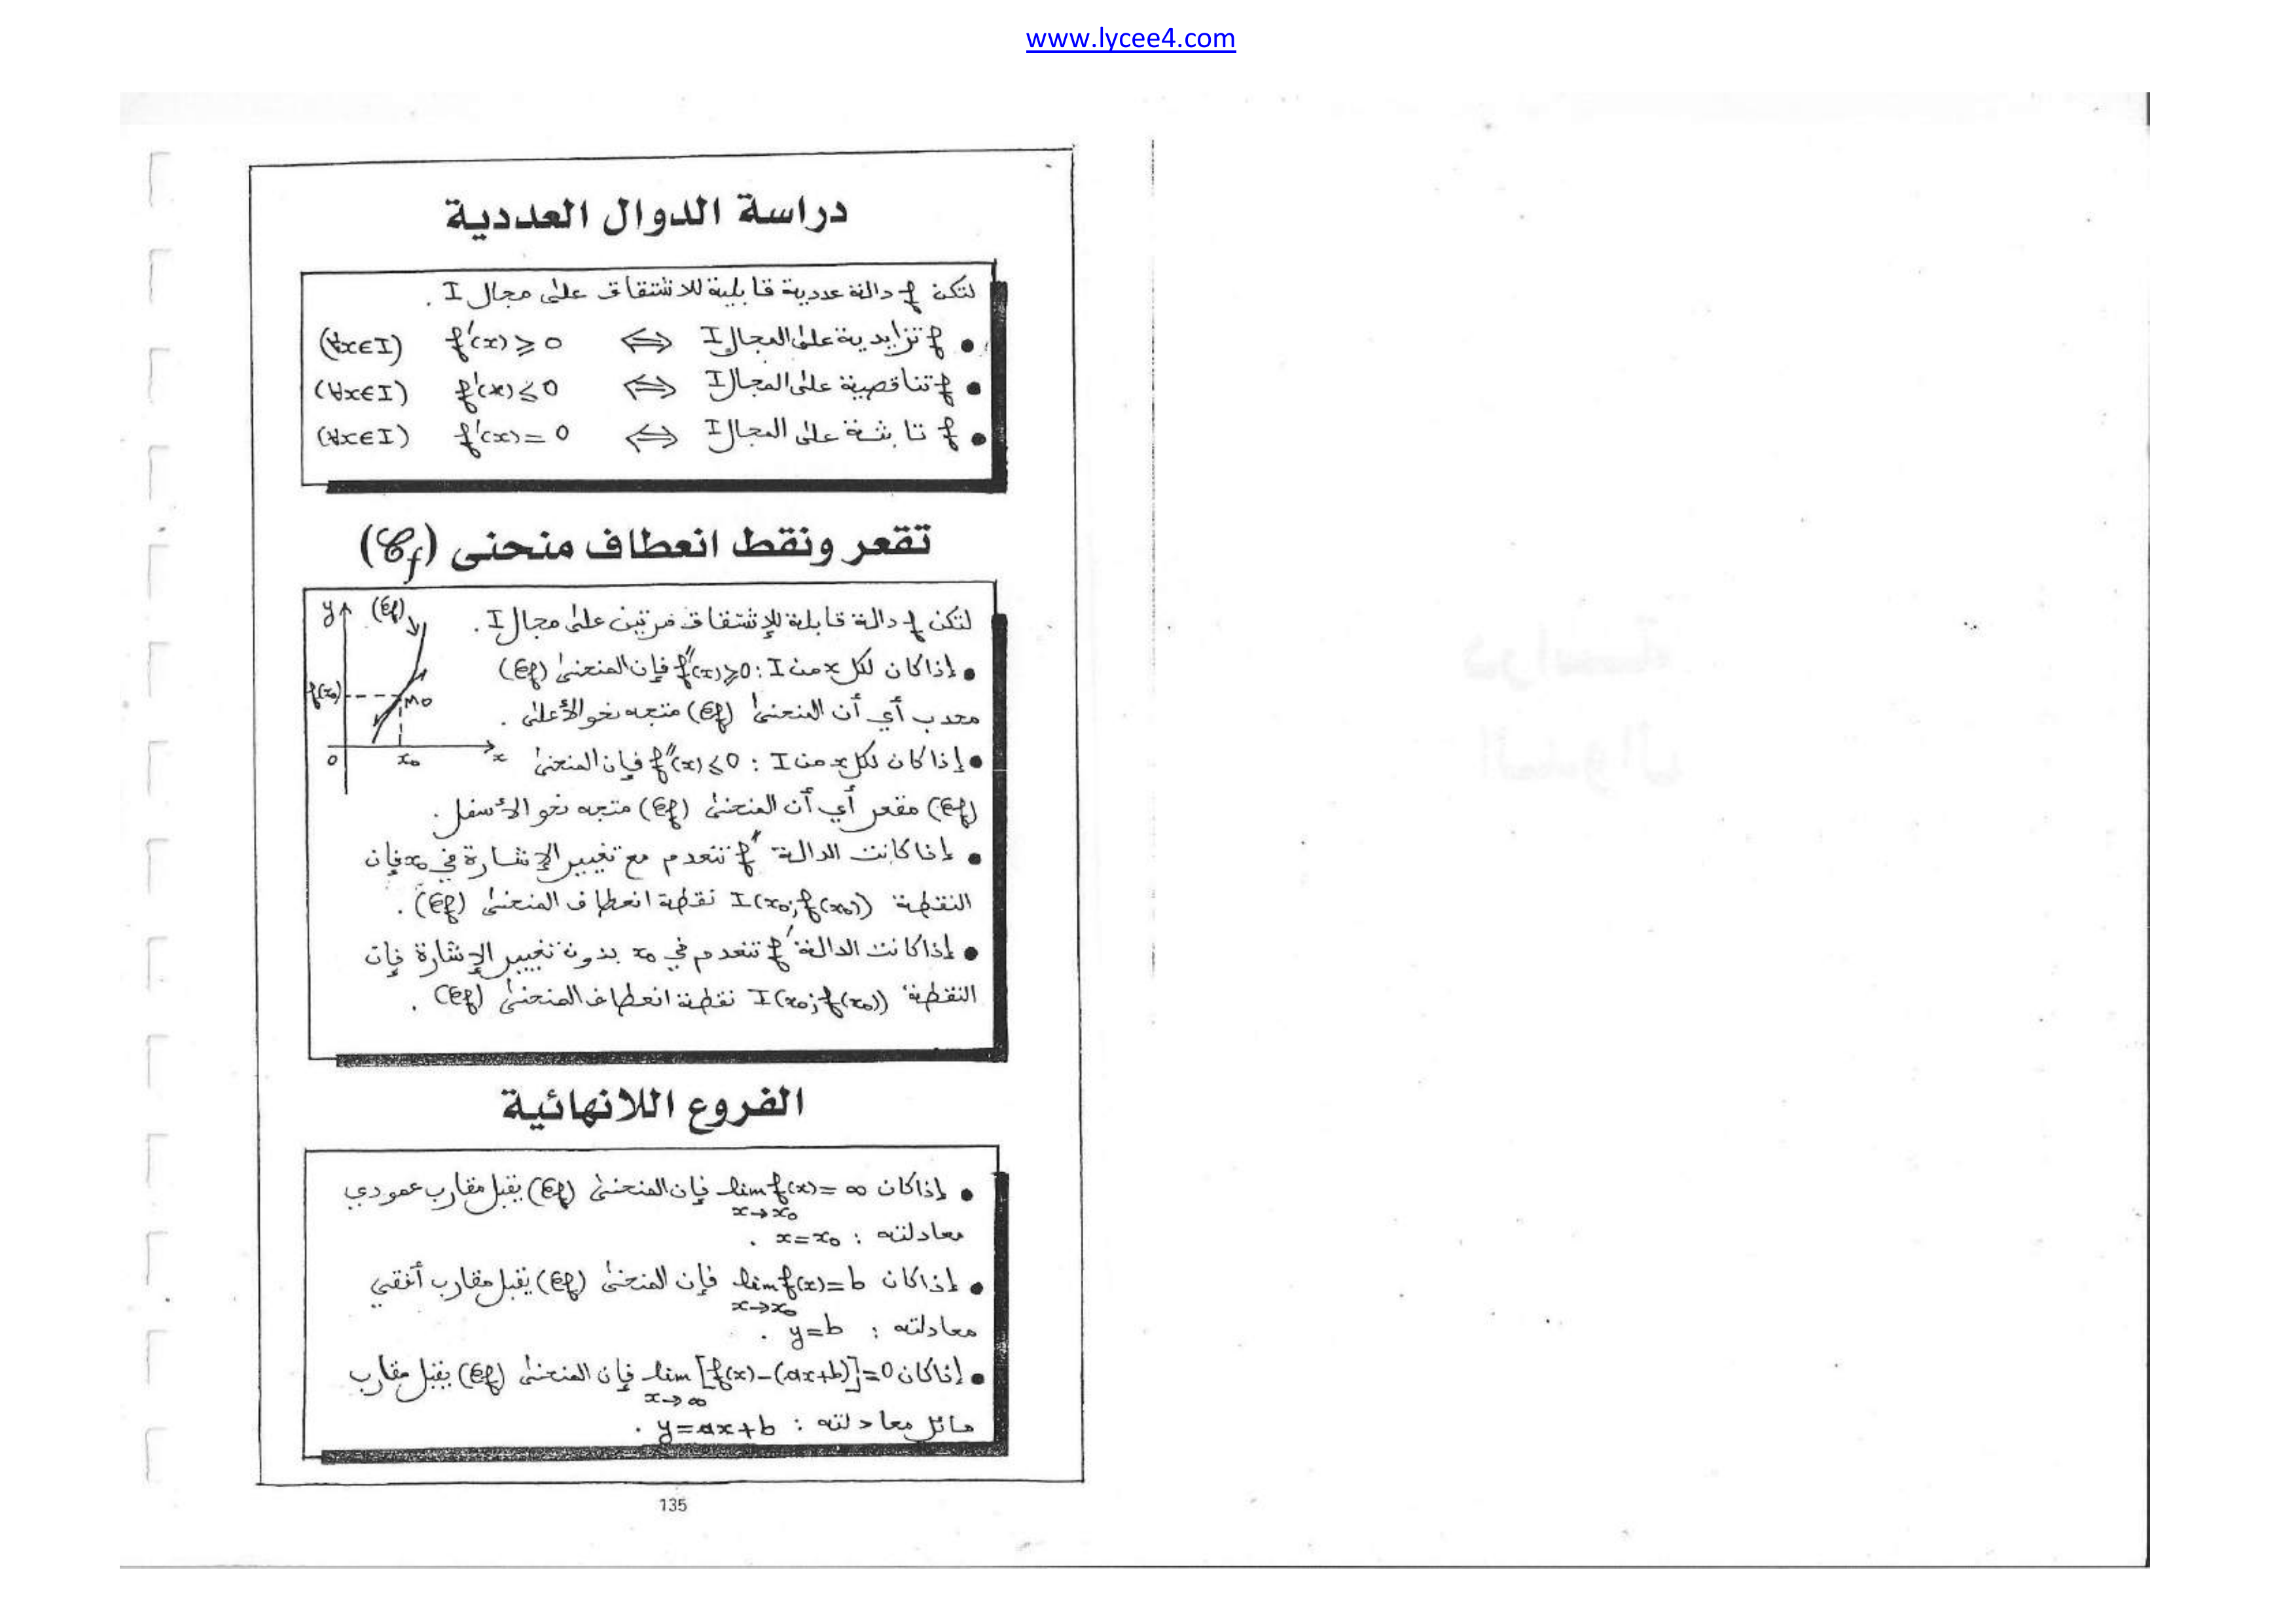 www.lycee4.com
دراسة الدوال العددية
لتكن f دالة عددية قابلية للاشتقاق على مجال I .
• f تزايدية على المجال I ⇔ f'(x) ⩾ 0 (∀x∈I)
• f تناقصية على المجال I ⇔ f'(x) ⩽ 0 (∀x∈I)
• f تابثة على المجال I ⇔ f'(x) = 0 (∀x∈I)
تقعر ونقط انعطاف منحنى (𝒞f)
لتكن f دالة قابلة للإشتقاق مرتين على مجال I .
• إذا كان لكل x من I : f''(x) ⩾ 0 فإن المنحنى (𝒞f)
محدب أي أن المنحنى (𝒞f) متجه نحو الأعلى .
• إذا كان لكل x من I : f''(x) ⩽ 0 فإن المنحنى
(𝒞f) مقعر أي أن المنحنى (𝒞f) متجه نحو الأسفل .
• إذا كانت الدالة f'' تنعدم مع تغيير الإشارة في x₀ فإن
النقطة I(x₀;f(x₀)) نقطة انعطاف المنحنى (𝒞f) .
• إذا كانت الدالة f' تنعدم في x₀ بدون تغيير الإشارة فإن
النقطة I(x₀;f(x₀)) نقطة انعطاف المنحنى (𝒞f) .
y (𝒞f)
f(x₀) M₀
0 x₀ x
الفروع اللانهائية
• إذا كان lim f(x) = ∞ فإن المنحنى (𝒞f) يقبل مقارب عمودي
x→x₀
معادلته : x = x₀ .
• إذا كان lim f(x) = b فإن المنحنى (𝒞f) يقبل مقارب أفقي
x→x₀
معادلته : y = b .
• إذا كان lim [f(x)-(ax+b)] = 0 فإن المنحنى (𝒞f) يقبل مقارب
x→∞
مائل معادلته : y = ax+b .
135